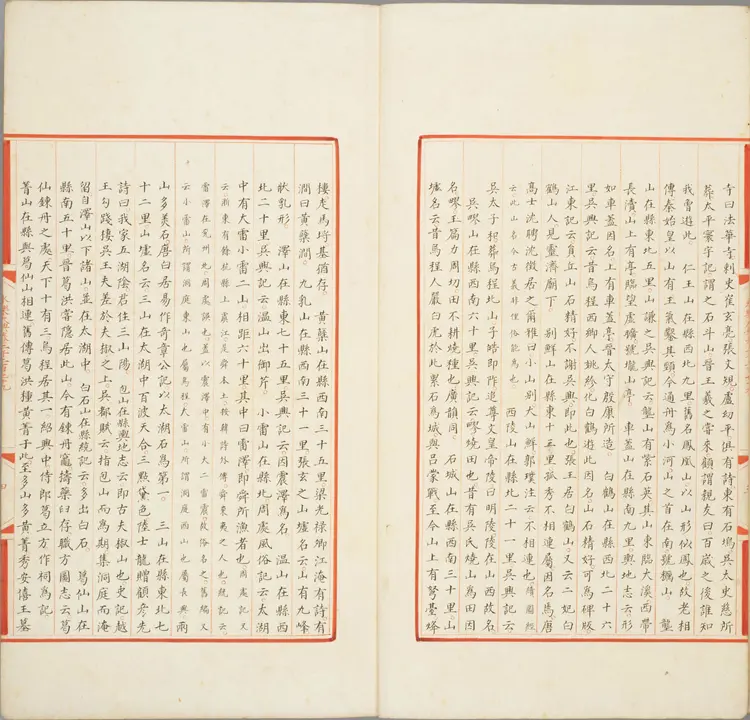 寺曰法華寺刺史崔玄亮張文規盧幼平俱有詩東有石塢吳太史慈所
葬太平寰宇記謂之石斗山晉王羲之嘗來顧謂親友曰百歲之後誰知
我曾遊此　仁王山在縣西北九里舊名鳳凰山以山形似鳳也故老相
傳秦始皇以山有王氣鑿其頸今通舟為小河山之首在南號獨山　壟
山在縣東北五里山謙之吳興記云壟山有紫石英其山東臨大溪西帶
長瀆山上有亭臨望虛曠號壟山亭　車蓋山在縣南九里輿地志云形
如車蓋因名上有車蓋亭晉太守殷康所造　白鶴山在縣西北二十六
里吳興記云昔烏程西鄉人姚紾化白鶴遊此因名山石精好可為碑版
江東記云貟立山石精好不謝吳興即此也張王居白鶴山又云二妃白
鶴山人見靈濟廟下　別鮮山在縣東十五里孤秀不相連屬因名為唐
高士沈聘沈徵居之爾雅曰小山別大山鮮郭璞注云不相連也續圖經
云此山名今古義非俚俗能為也　西陵山在縣北二十一里吳興記云
吳太子和葬烏程北山子皓即阼追尊文皇帝陵曰明陵陵在山西故名
吳嘐山在縣西南六十里吳興記云嘐燒田也昔有吳氏燒山為田因
名嘐玉篇力周切田不耕燒種也廣韻同　石城山在縣西南三十里山
墟名云昔烏程人嚴白虎於此壘石為城與呂蒙戰至今山上有弩臺烽
樓走馬埒基猶存　黃蘗山在縣西南三十五里梁光祿卿江淹有詩有
澗曰黃蘗澗　九乳山在縣西南三十一里張玄之山墟名云山有九峰
狀乳形　澤山在縣東七十五里吳興記云因震澤為名　溫山在縣西
北二十里吳興記云溫山出御荈　小雷山在縣北周處風俗記云太湖
中有大雷小雷二山相距六十里其中曰雷澤即舜所漁者也周處記又
云浙東有餘杭縣上虞江是舜本土按韓詩外傳舜東夷之人也統記云
雷澤在兗州地周處誤也蓋以震澤中有小大二雷震故俗名之舊編又
云小雷山所謂洞庭東山也屬烏程大雷山所謂洞庭西山也屬長興兩
山多美石唐白居易作奇章公記以太湖石為第一　三山在縣東北七
十二里山墟名云三山在太湖中白波天合三點黛色陸士龍贈顧彥先
詩曰我家五湖陰君住三山陽　包山在縣輿地志云即古夫椒山也史記越
王勾踐棲吳王夫差於夫椒之上吳都賦云指包山而為期集洞庭而淹
留自澤山以下諸山並在太湖中　白石山在縣統記云多出白石　葛仙山在
縣南五十里晉葛洪嘗隱居此山今有鍊丹竈擣藥臼存職方圖志云葛
仙鍊丹之處天下十有三烏程居其一郎興中侍郎葛立方作祠為記
菁山在縣與葛仙山相連舊傳葛洪種黃菁于此至多山多黃菁秀安僖王墓